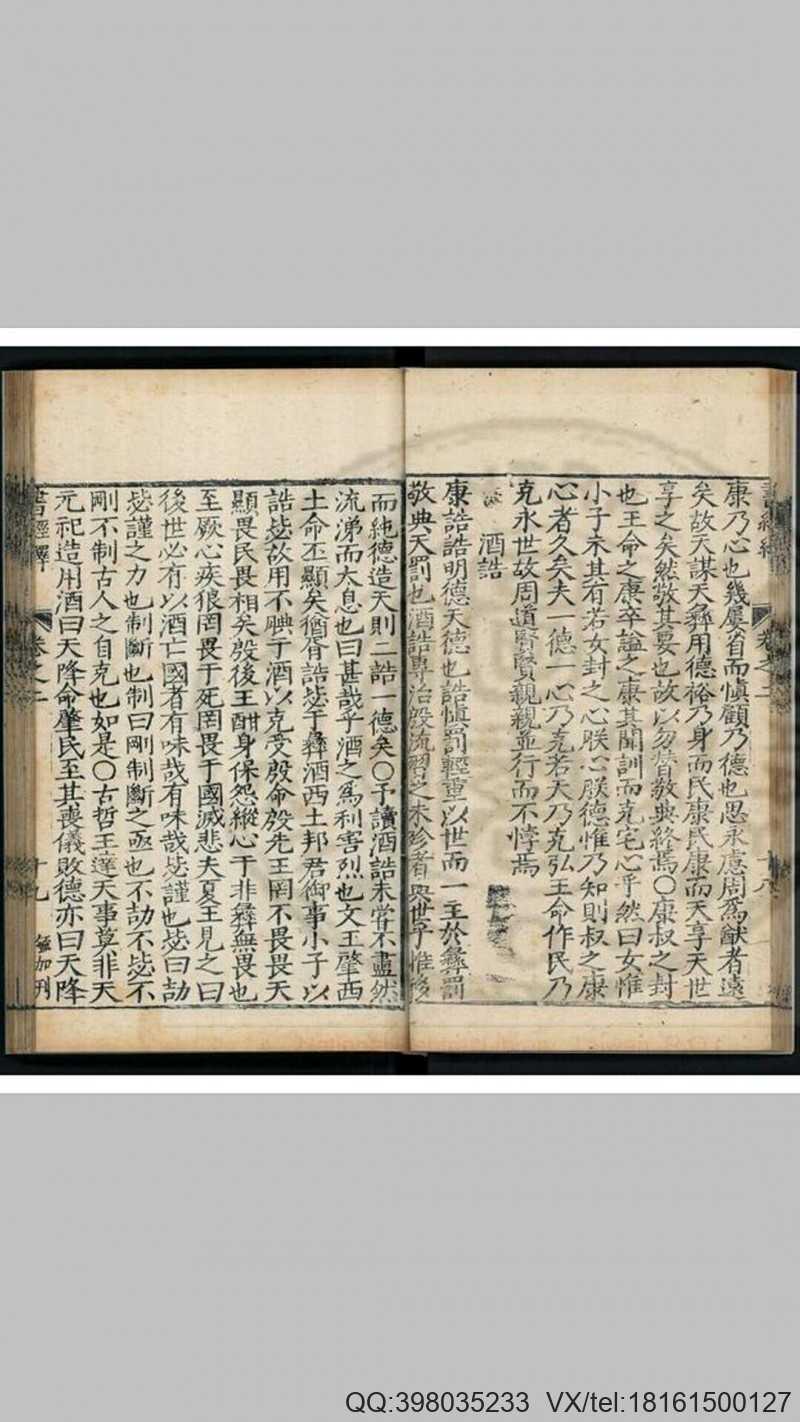 康乃心也幾屢省而慎顧乃德也思永慮周為猷者遠
矣故天謀天彝用德裕乃身而民康民康而天享天世
享之矣然敬其要也故以勿替敬典終焉〇康叔之封
也王命之康卒諡之康其聞訓而克宅心乎然曰女惟
小子未其有若女封之心朕心朕德惟乃知則叔之康
心者久矣夫一德一心乃克若天乃克弘王命作民乃
克永世故周道賢賢親親並行而不悖焉
酒誥
康誥誥明德天德也誥慎罰輕重以世而一主於彝罰
敬典天罰也酒誥專治殷流習之未殄者與世乎惟
而純德造天則二誥一德矣〇予讀酒誥未嘗不盡然
流涕而太息也曰甚哉乎酒之為利害烈也文王肇西
土命丕顯矣猶胥誥毖于彝酒西土邦君御事小子以
誥毖故用不腆于酒以克受殷命殷先王罔不畏畏天
顯畏民畏相矣殷後王酣身保怨縱心于非彝無畏也
至厥心疾狠罔畏于死罔畏于國滅悲夫夏王見之曰
後世必有以酒亡國者有味哉有味哉毖謹也毖曰劼
毖謹之力也制斷也制曰剛制斷之亟也不劼不毖不
剛不制古人之自克也如是〇古哲王達天事莫非天
元祀造用酒曰天降命肇民至其喪儀敗德亦曰天降
書經繹
卷之二
十九
QQ:398035233 VX/tel:18161500127